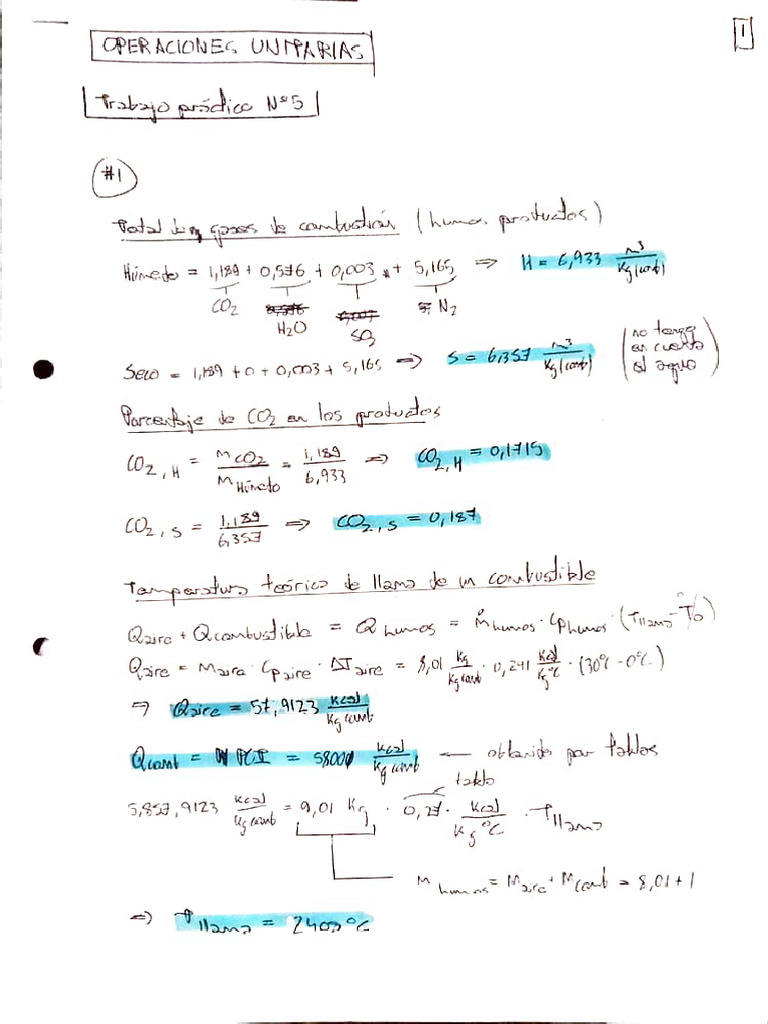 1
OPERACIONES UNITARIAS
Trabajo práctico Nº5
#1
Total de gases de combustión (humos, productos)
Húmedo = 1,189 + 0,576 + 0,003 + 5,165 ⇒ H = 6,933 m³/Kg(comb)
CO₂ H₂O SO₂ N₂
Seco = 1,189 + 0 + 0,003 + 5,165 ⇒ S = 6,357 m³/Kg(comb) (no tengo en cuenta el agua)
Porcentaje de CO₂ en los productos
CO₂,H = MCO₂/MHúmedo = 1,189/6,933 ⇒ CO₂,H = 0,1715
CO₂,S = 1,189/6,357 ⇒ CO₂,S = 0,187
Temperatura teórica de llama de un combustible
Qaire + Qcombustible = Qhumos = ṁhumos · Cphumos · (Tllama - T0)
Qaire = Maire · Cpaire · ΔTaire = 8,01 kg/kgcomb · 0,241 kcal/kg°C · (30°C - 0°C)
⇒ Qaire = 57,9123 kcal/kgcomb
Qcomb = PCI = 5800 kcal/kgcomb ← obtenido por tablas
tabla
5,857,9123 kcal/kgcomb = 9,01 Kg · 0,27 · kcal/kg°C · Tllama
Mhumos = Maire + Mcomb = 8,01 + 1
⇒ Tllama = 2403°C